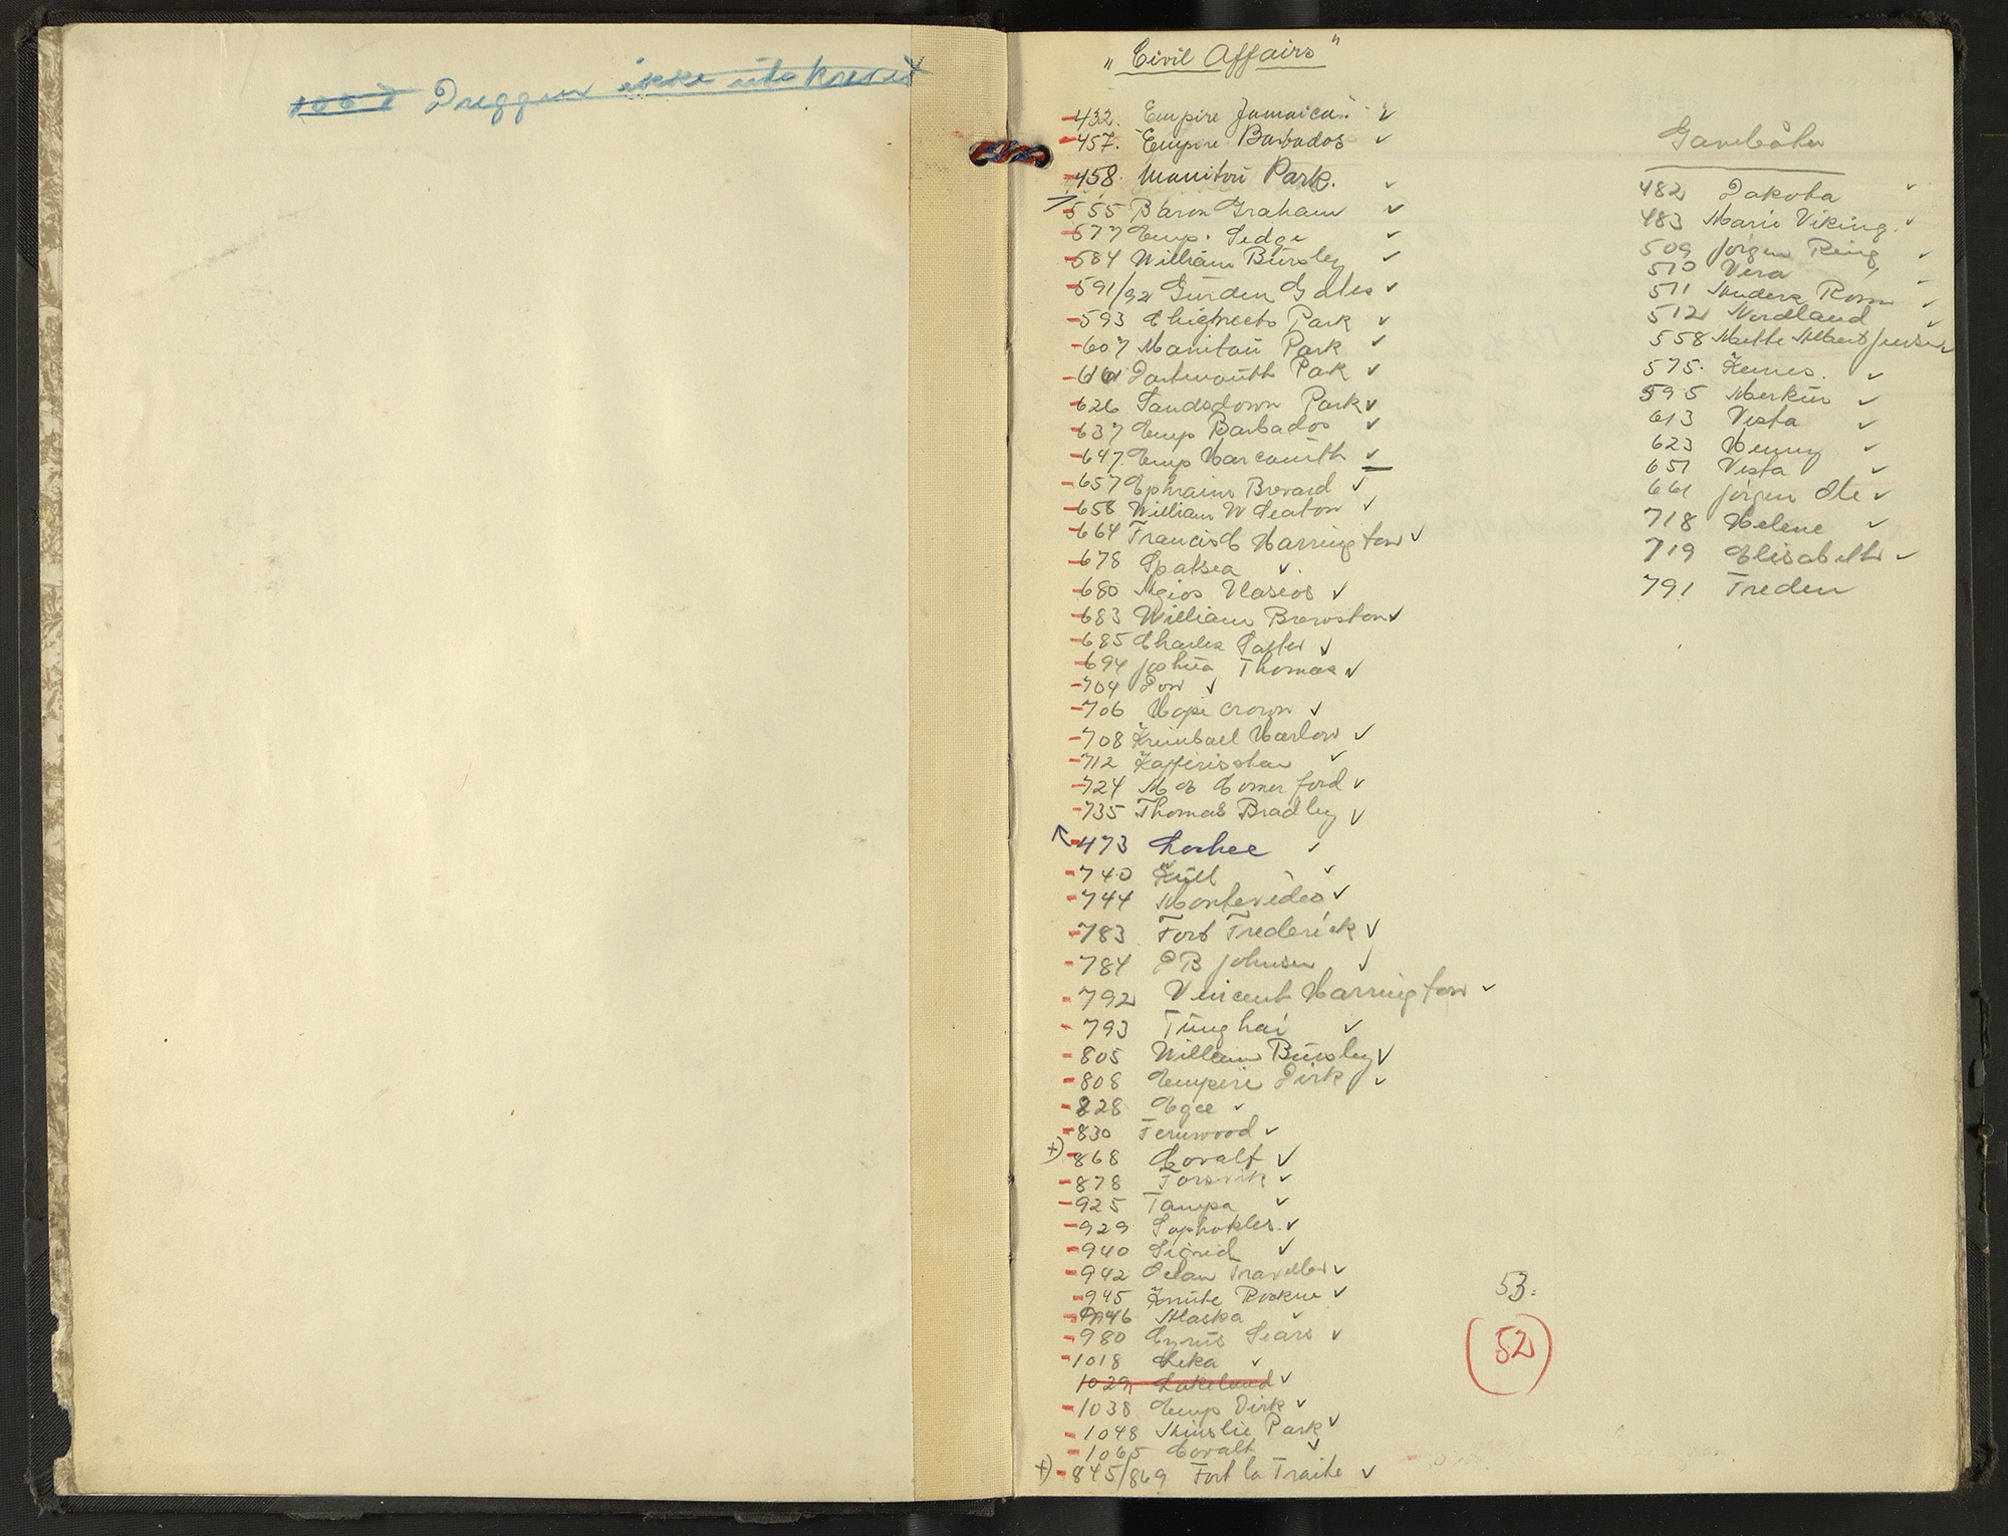 1007 Dreggen ikke utskrevet
"Civil Affairs"
-432. Empire Jamaica. ✓
-457. Empire Barbados ✓
-458. Manitou Park. ✓
-555 Baron Graham ✓
-577 Emp. Sedge ✓
-584 William Bursley ✓
-591/92 Gurden Gates ✓
-593 Chignecto Park ✓
-607 Manitou Park ✓
Dartmouth Park ✓
-626 Sandsdown Park ✓
-637 Emp Barbados ✓
-647 Emp Harcourth ✓
-657 Ephraim Brevard ✓
-658 William W Seaton ✓
-664 Francis C Harrington ✓
-678 Spatsea ✓
-680 Agios Vlasios ✓
-683 William Brewston ✓
-685 Charles Salter ✓
-694 Joshua Thomas ✓
-704 Dow ✓
-706 Hope crown ✓
-708 Kimball Harlow ✓
-712 Kaffiristan ✓
-724 M C Comerford ✓
-735 Thomas Bradley ✓
-473 Lochee ✓
-740 Kull ✓
-744 Montevideo ✓
-783 Fort Frederick ✓
-784 J B Johnson ✓
-792 Vincent Harrington ✓
-793 Tunghai ✓
-805 William Bursley ✓
-808 Empire Dirk ✓
-828 Egee ✓
-830 Fernwood ✓
+) -868 Covalt ✓
-878 Forsvik ✓
-925 Tampa ✓
-929 Sophokles ✓
-940 Sigrid ✓
-942 Ocean Traveller ✓
-945 Knute Rockne ✓
-946 Alaska ✓
-980 Cyrus Sears ✓
-1018 Leka ✓
1029 Lakeland ✓
-1038 Emp Dirk ✓
-1048 Ainslie Park ✓
-1065 Covalt ✓
+) -845/869 Fort la Traite ✓
53.
(52)
Gavebåter
482 Dakota ✓
483 Marie Viking ✓
509 Jörgen Ring ✓
510 Vera " ✓
511 Anders Rosen ✓
512 Nordland ✓
558 Mette Albert Jensen
575. Kenes. ✓
595 Merkur ✓
613 Vesta ✓
623 Henny ✓
651 Vesta ✓
661 Jörgen Ole ✓
718 Helene ✓
719 Elisabeth ✓
791 Freden